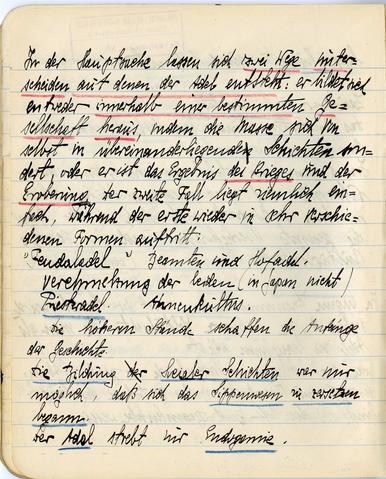 In der Hauptsache lassen sich zwei Wege unter-
scheiden auf denen der Adel entsteht: er bildet sich
entweder innerhalb einer bestimmten Ge-
sellschaft heraus, indem die Masse sich von
selbst in übereinanderliegenden Schichten son-
dert, oder er ist das Ergebnis des Krieges und der
Eroberung. Der zweite Fall liegt ziemlich ein-
fach, während der erste wieder in sehr verschie-
denen Formen auftritt.
"Feudaladel" Beamten und Hofadel.
Verschmelzung der beiden (in Japan nicht)
Priesteradel. Ahnenkultus.
Die höheren Stände schaffen die Anfänge
der Geschichte.
Die Bildung der sozialer Schichten war nur
möglich, daß sich das Sippenwesen zu zersetzen
begann.
Der Adel strebt zur Endogamie.